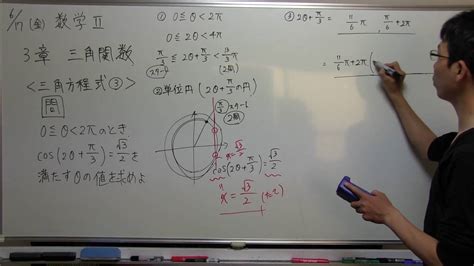 6/17 (金) 数学Ⅱ
3章 三角関数
<三角方程式③>
問
0≦θ<2πのとき
cos(2θ+π/3)=√3/2 を
満たすθの値を求めよ
① 0≦θ<2π
0≦2θ<4π
π/3≦2θ+π/3<13/3π
スタート
(2周)
②単位円(2θ+π/3の円)
π/3スタート
2周
x=√3/2
cos(2θ+π/3)=√3/2
x=√3/2
③ 2θ+π/3=11/6π, π/6+2π
=11/6π+2π(